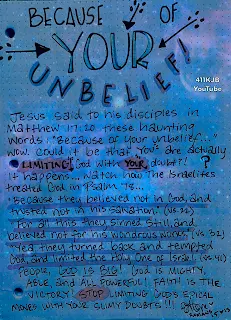 BECAUSE OF
YOUR
UNBELIEF!
411KJB
YouTube
Jesus said to his disciples in
Matthew 17:20 these haunting
words: "Because of your unbelief..."
Wow. Could it be that YOU are actually
LIMITING God with YOUR doubt?
It happens... Watch how the Israelites
treated God in Psalm 78...
"Because they believed not in God, and
trusted not in his salvation." (vs. 22)
"For all this they sinned still, and
believed not for his wondrous works." (vs. 32)
"Yea, they turned back and tempted
God, and limited the Holy One of Israel." (vs. 41)
PEOPLE, GOD IS BIG! GOD IS MIGHTY,
ABLE, AND ALL POWERFUL! FAITH IS THE
VICTORY! STOP LIMITING GOD'S EPICAL
MOVES WITH YOUR SLIMY DOUBTS!!!